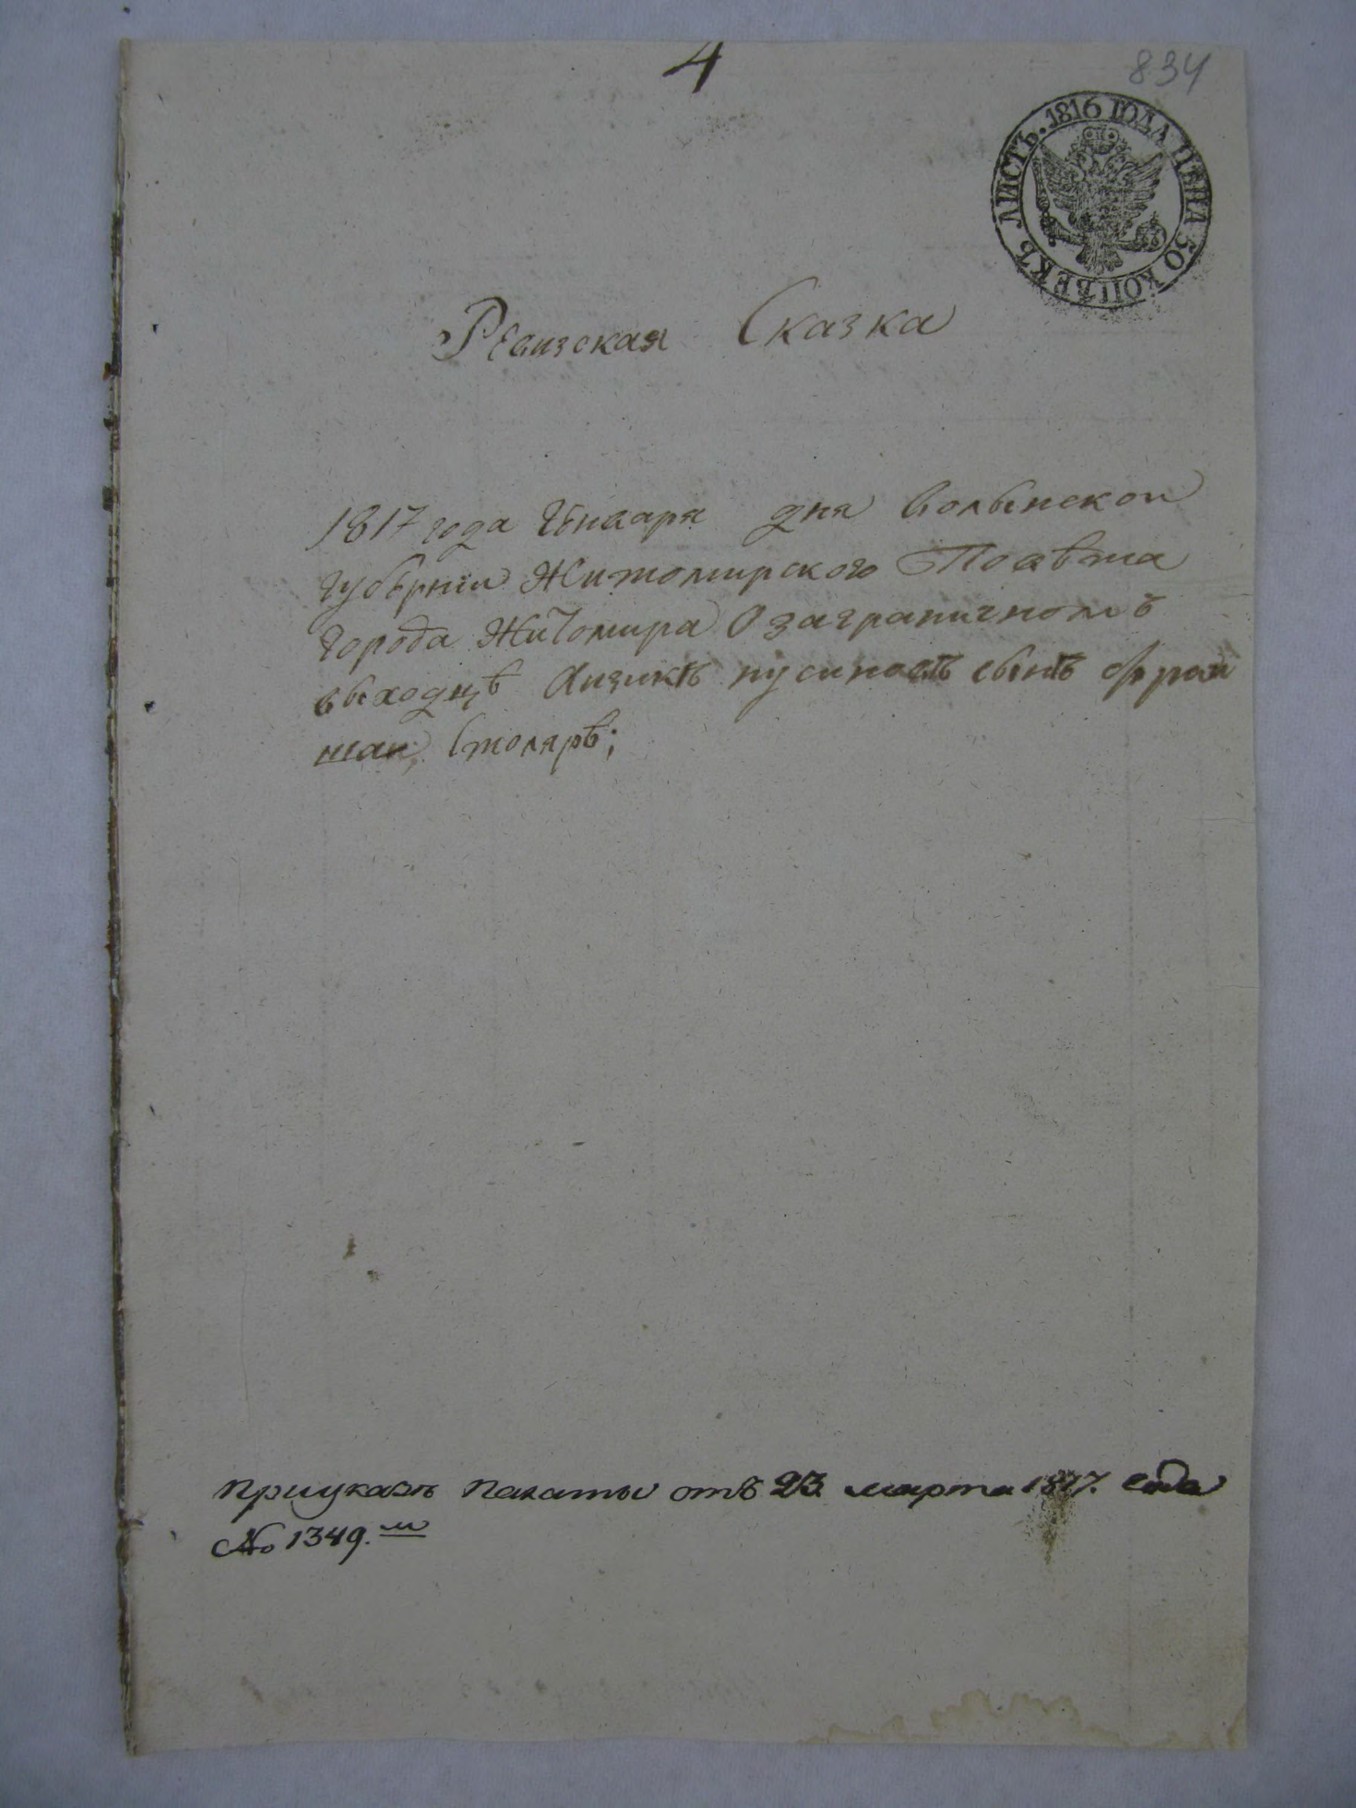 4
834
ЛИСТЪ. 1816 ГОДА ЦѢНА 50 КОПѢЕКЪ
Ревизская Сказка
1817 года Генваря дня Волынской
Губернии Житомирского Повѣта
города Житомира О заграничномъ
выходцѣ сынъ
Столяръ;
При указѣ палаты отъ 23. марта 1817. года
№ 1349.м